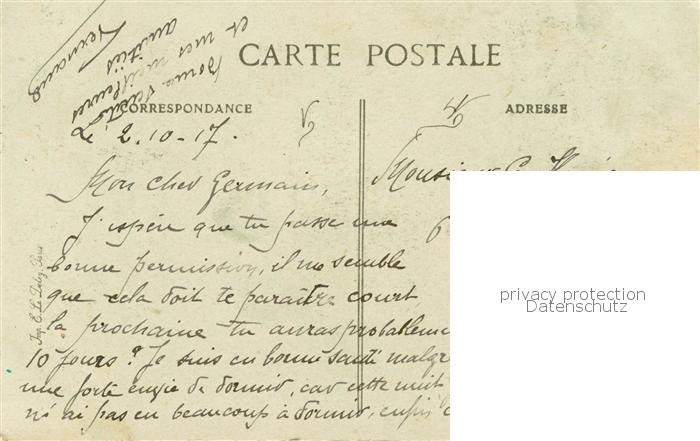 CARTE POSTALE
CORRESPONDANCE
ADRESSE
Bonne santé
et mes meilleures
amitiés
Le 2.10-17.
Monsieur
Mon cher Germain,
J'espère que tu passe une
bonne permission, il me semble
que cela doit te paraître court,
la prochaine tu auras probableme
10 jours? Je suis en bonne santé malgré
une forte envie de dormir, car cette nuit
n'ai pas eu beaucoup à dormir, enfin
Imp. E. Le Deley, Paris
privacy protection
Datenschutz